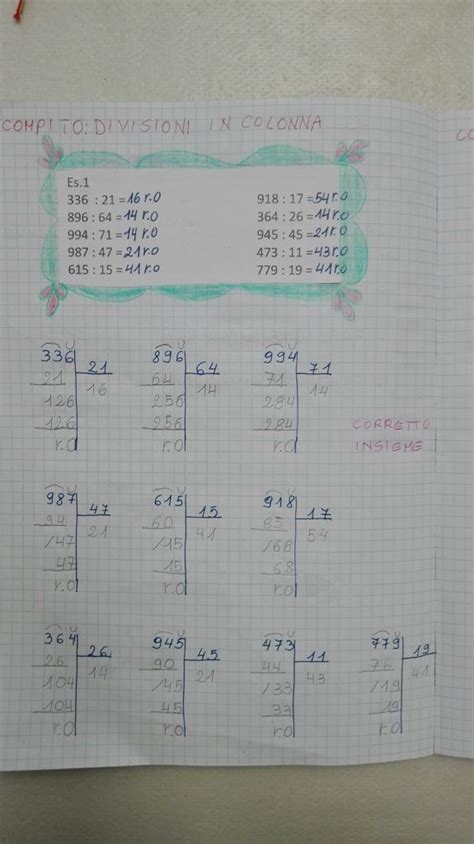 COMPITO: DIVISIONI IN COLONNA
CO
Es.1
336 : 21 = 16 r.0
918 : 17 = 54 r.0
896 : 64 = 14 r.0
364 : 26 = 14 r.0
994 : 71 = 14 r.0
945 : 45 = 21 r.0
987 : 47 = 21 r.0
473 : 11 = 43 r.0
615 : 15 = 41 r.0
779 : 19 = 41 r.0
336 21 896 64 994 71
21 16 64 14 71 14
126 256 284
126 256 284
r.0 r.0 r.0
CORRETTO
INSIEME
987 47 615 15 918 17
94 21 60 41 85 54
/47 /15 /68
47 15 68
r.0 r.0 r.0
364 26 945 45 473 11 779 19
26 14 90 21 44 43 76 41
104 /45 /33 /19
104 45 33 19
r.0 r.0 r.0 r.0